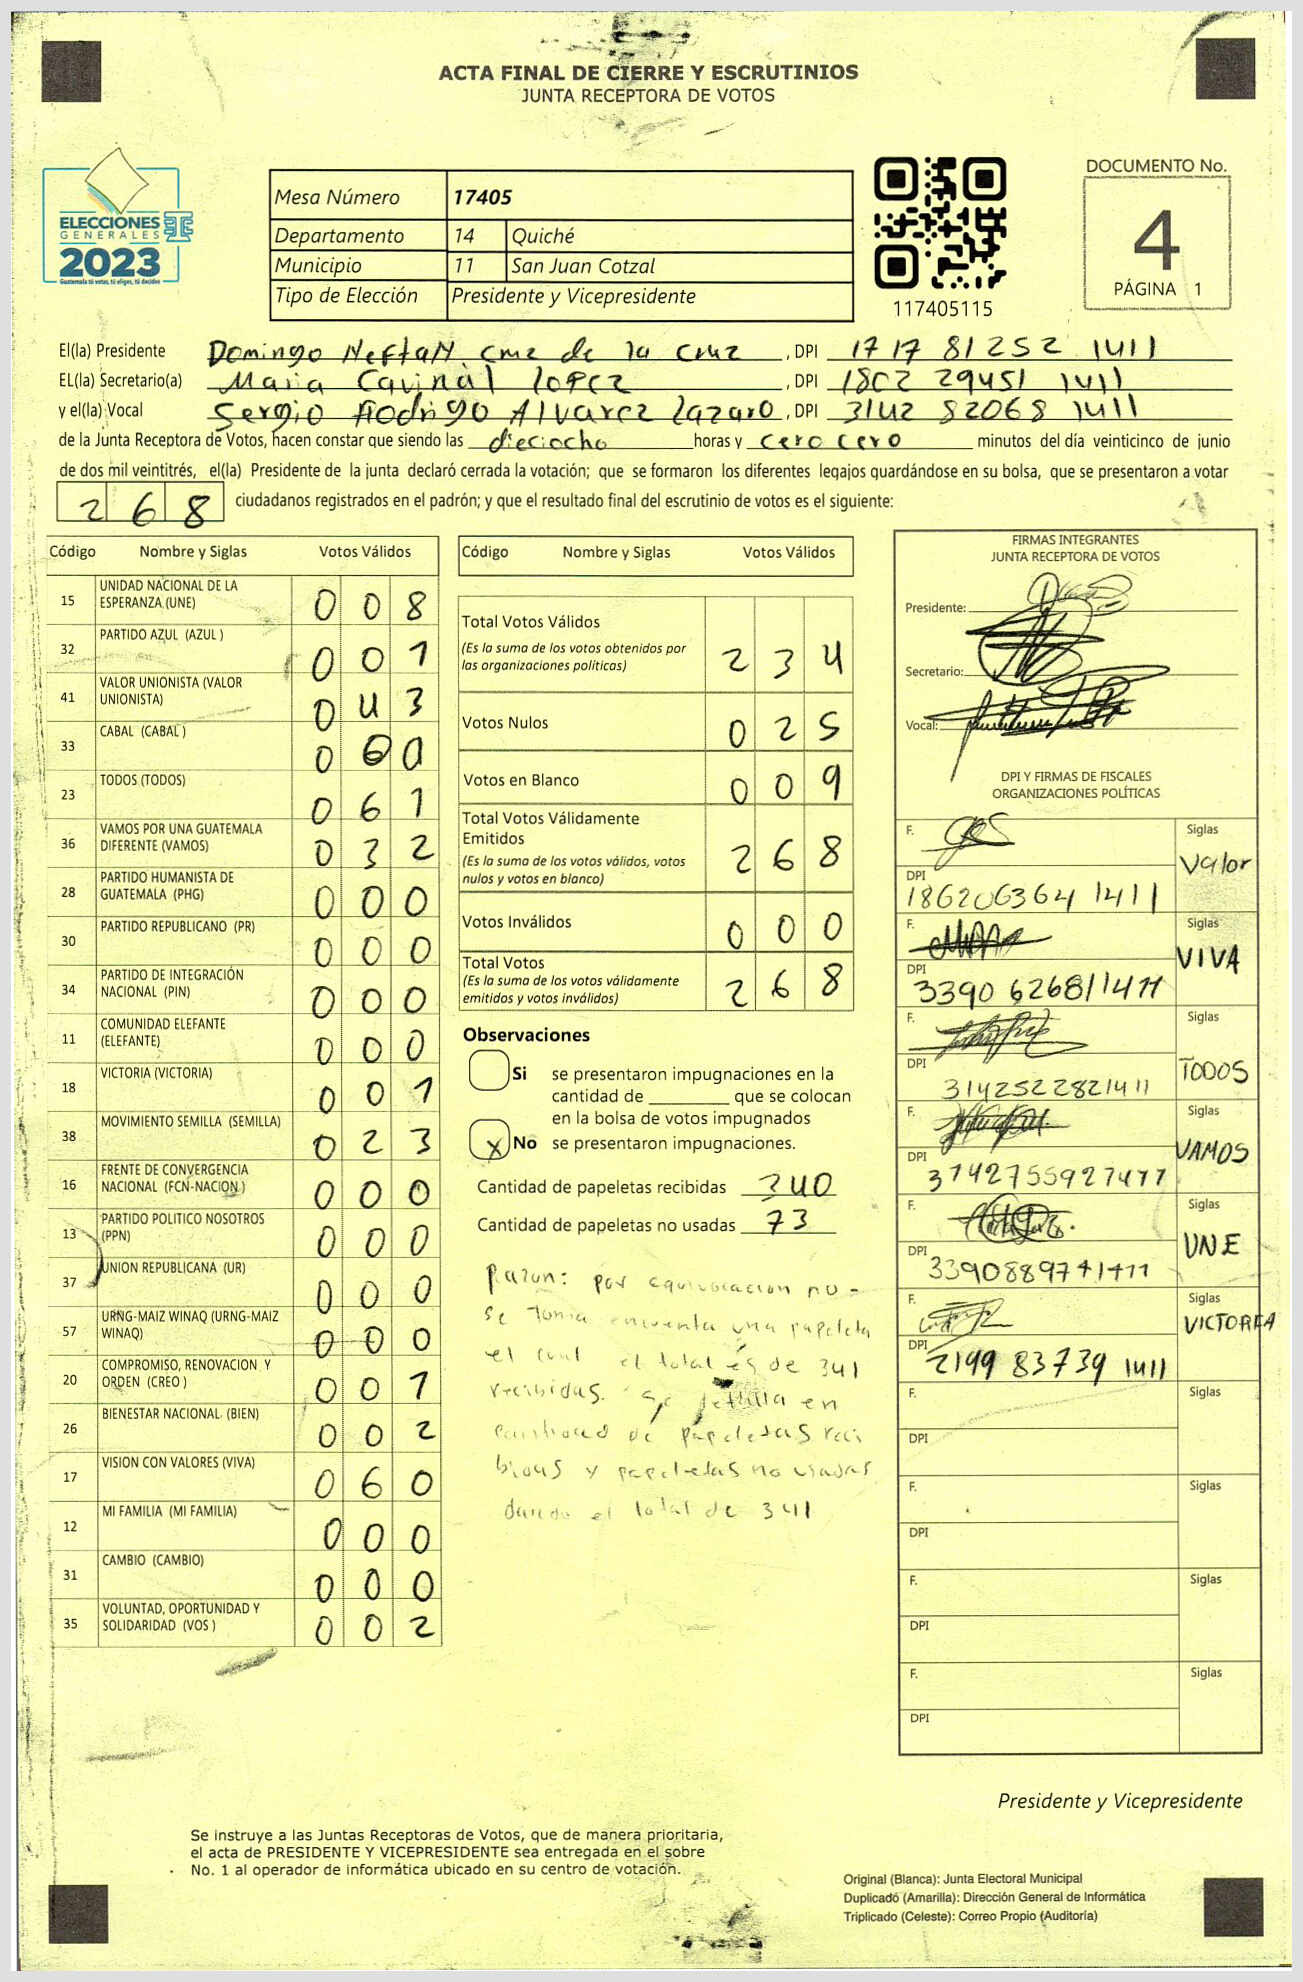 ACTA FINAL DE CIERRE Y ESCRUTINIOS
JUNTA RECEPTORA DE VOTOS
ELECCIONES
GENERALES
2023
Guatemala tú votas, tú eliges, tú decides
Mesa Número 17405
Departamento 14 Quiché
Municipio 11 San Juan Cotzal
Tipo de Elección Presidente y Vicepresidente
117405115
DOCUMENTO No.
4
PÁGINA 1
El(la) Presidente Domingo Neftalí Cruz de la Cruz , DPI 1717 81252 1411
EL(la) Secretario(a) Maria Cavinal lopez , DPI 1802 29451 1411
y el(la) Vocal Sergio Rodrigo Alvarez Lazaro , DPI 3142 82068 1411
de la Junta Receptora de Votos, hacen constar que siendo las dieciocho horas y cero cero minutos del día veinticinco de junio
de dos mil veintitrés, el(la) Presidente de la junta declaró cerrada la votación; que se formaron los diferentes legajos quardándose en su bolsa, que se presentaron a votar
268 ciudadanos registrados en el padrón; y que el resultado final del escrutinio de votos es el siguiente:
Código Nombre y Siglas Votos Válidos
15 UNIDAD NACIONAL DE LA ESPERANZA (UNE) 008
32 PARTIDO AZUL (AZUL ) 001
41 VALOR UNIONISTA (VALOR UNIONISTA) 043
33 CABAL (CABAL ) 000
23 TODOS (TODOS) 061
36 VAMOS POR UNA GUATEMALA DIFERENTE (VAMOS) 032
28 PARTIDO HUMANISTA DE GUATEMALA (PHG) 000
30 PARTIDO REPUBLICANO (PR) 000
34 PARTIDO DE INTEGRACIÓN NACIONAL (PIN) 000
11 COMUNIDAD ELEFANTE (ELEFANTE) 000
18 VICTORIA (VICTORIA) 001
38 MOVIMIENTO SEMILLA (SEMILLA) 023
16 FRENTE DE CONVERGENCIA NACIONAL (FCN-NACION ) 000
13 PARTIDO POLITICO NOSOTROS (PPN) 000
37 UNION REPUBLICANA (UR) 000
57 URNG-MAIZ WINAQ (URNG-MAIZ WINAQ) 000
20 COMPROMISO, RENOVACION Y ORDEN (CREO ) 001
26 BIENESTAR NACIONAL (BIEN) 002
17 VISION CON VALORES (VIVA) 060
12 MI FAMILIA (MI FAMILIA) 000
31 CAMBIO (CAMBIO) 000
35 VOLUNTAD, OPORTUNIDAD Y SOLIDARIDAD (VOS ) 002
Código Nombre y Siglas Votos Válidos
Total Votos Válidos 234
(Es la suma de los votos obtenidos por
las organizaciones políticas)
Votos Nulos 025
Votos en Blanco 009
Total Votos Válidamente
Emitidos 268
(Es la suma de los votos válidos, votos
nulos y votos en blanco)
Votos Inválidos 000
Total Votos 268
(Es la suma de los votos válidamente
emitidos y votos inválidos)
Observaciones
Si se presentaron impugnaciones en la
cantidad de ________ que se colocan
en la bolsa de votos impugnados
x No se presentaron impugnaciones.
Cantidad de papeletas recibidas 340
Cantidad de papeletas no usadas 73
Razon: por equivocacion no -
se toma encuenta una papeleta
el cual el total es de 341
recibidas. se detalla en
cantidad de papeletas reci
bidas y papeletas no usadas
dando el total de 341
FIRMAS INTEGRANTES
JUNTA RECEPTORA DE VOTOS
Presidente:
Secretario:
Vocal:
DPI Y FIRMAS DE FISCALES
ORGANIZACIONES POLÍTICAS
F. Siglas Valor
DPI 186206364 1411
F. Siglas VIVA
DPI 3390 62681 1411
F. Siglas TODOS
DPI 3142522821411
F. Siglas VAMOS
DPI 3142755921411
F. Siglas UNE
DPI 3390889741411
F. Siglas VICTORIA
DPI 2199 83739 1411
F. Siglas
DPI
F. Siglas
DPI
F. Siglas
DPI
F. Siglas
DPI
Presidente y Vicepresidente
Se instruye a las Juntas Receptoras de Votos, que de manera prioritaria,
el acta de PRESIDENTE Y VICEPRESIDENTE sea entregada en el sobre
No. 1 al operador de informática ubicado en su centro de votación.
Original (Blanca): Junta Electoral Municipal
Duplicadó (Amarilla): Dirección General de Informática
Triplicado (Celeste): Correo Propio (Auditoría)